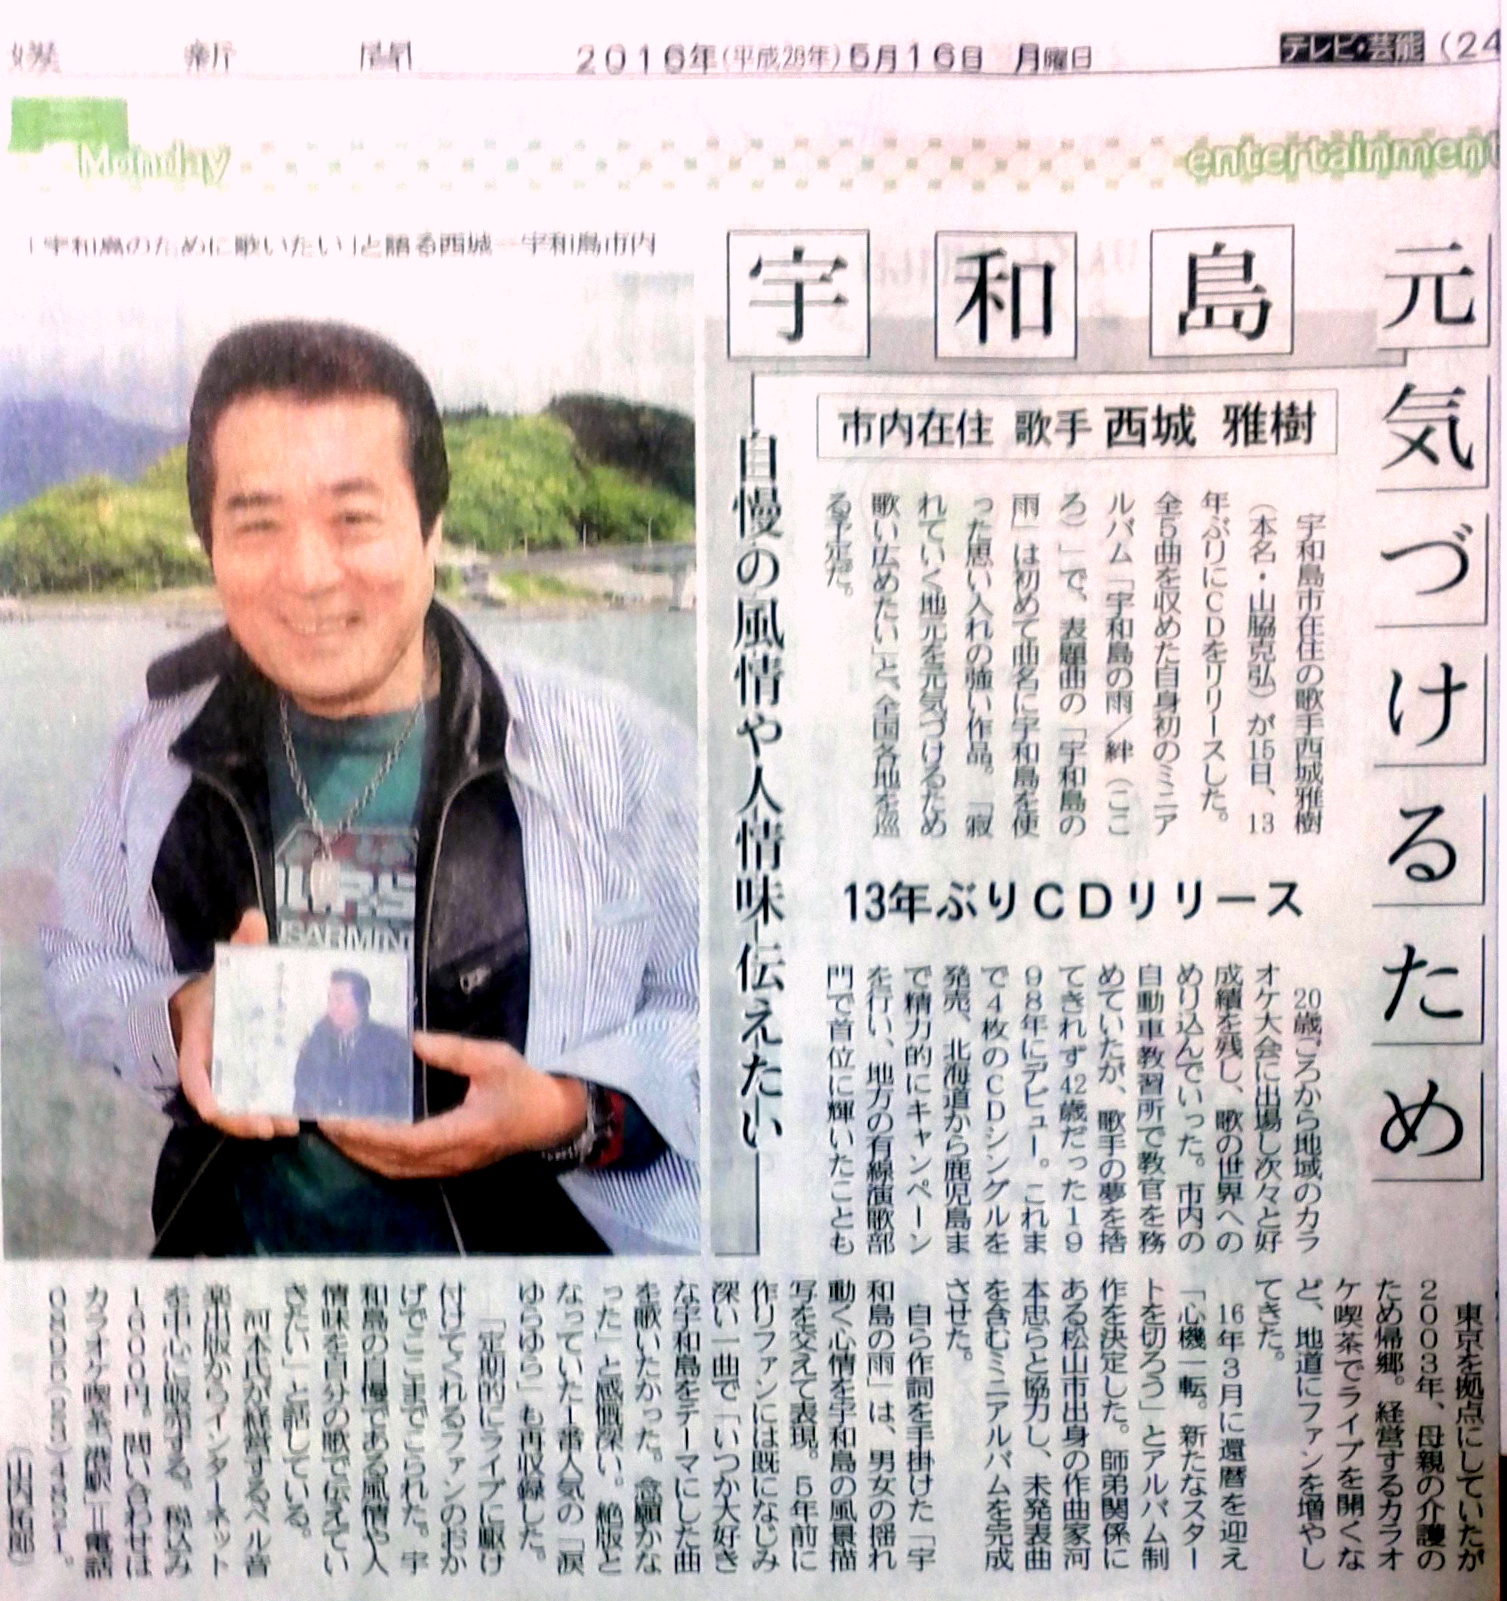 媛 新 聞
2016年(平成28年)5月16日 月曜日
テレビ・芸能
(24
月
Monday
entertainment
「宇和島のために歌いたい」と語る西城=宇和島市内
宇和島
元気づけるため
市内在住 歌手 西城 雅樹
自慢の風情や人情味伝えたい
宇和島市在住の歌手西城雅樹
(本名・山脇克弘)が15日、13
年ぶりにCDをリリースした。
全5曲を収めた自身初のミニア
ルバム「宇和島の雨/絆(ここ
ろ)」で、表題曲の「宇和島の
雨」は初めて曲名に宇和島を使
った思い入れの強い作品。「寂
れていく地元を元気づけるため
歌い広めたい」と、全国各地を巡
る予定だ。
13年ぶりCDリリース
20歳ごろから地域のカラ
オケ大会に出場し次々と好
成績を残し、歌の世界への
めり込んでいった。市内の
自動車教習所で教官を務
めていたが、歌手の夢を捨
てきれず42歳だった19
98年にデビュー。これま
で4枚のCDシングルを
発売、北海道から鹿児島ま
で精力的にキャンペーン
を行い、地方の有線演歌部
門で首位に輝いたことも
東京を拠点にしていたが
2003年、母親の介護の
ため帰郷。経営するカラオ
ケ喫茶でライブを開くな
ど、地道にファンを増やし
てきた。
16年3月に還暦を迎え
「心機一転。新たなスター
トを切ろう」とアルバム制
作を決定した。師弟関係に
ある松山市出身の作曲家河
本忠らと協力し、未発表曲
を含むミニアルバムを完成
させた。
自ら作詞を手掛けた「宇
和島の雨」は、男女の揺れ
動く心情を宇和島の風景描
写を交えて表現。5年前に
作りファンには既になじみ
深い一曲で「いつか大好き
な宇和島をテーマにした曲
を歌いたかった。念願かな
った」と感慨深い。絶版と
なっていた1番人気の「涙
ゆらゆら」も再収録した。
「定期的にライブに駆け
付けてくれるファンのおか
げでここまでこられた。宇
和島の自慢である風情や人
情味を自分の歌で伝えてい
きたい」と話している。
河本氏が経営するベル音
楽出版からインターネット
を中心に販売する。税込み
1600円。問い合わせは
カラオケ喫茶「港駅」=電話
(山内拓郎)